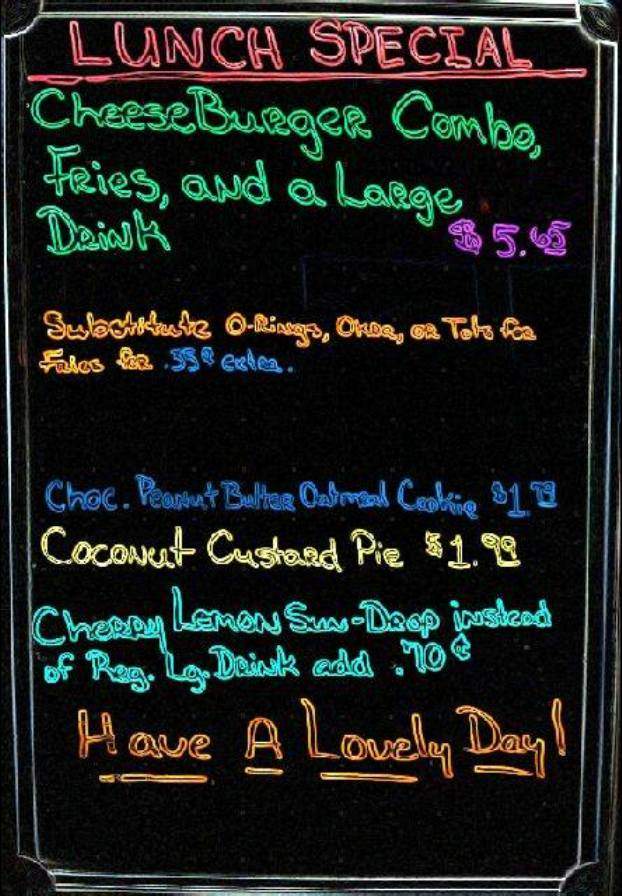 LUNCH SPECIAL
CheeseBurger Combo,
Fries, and a Large
Drink $5.65
Substitute O-Rings, Okra, or Tots for
Fries for .35¢ extra.
Choc. Peanut Butter Oatmeal Cookie $1.79
Coconut Custard Pie $1.99
Cherry Lemon Sun-Drop instead
of Reg. Lg. Drink add .70¢
Have A Lovely Day!